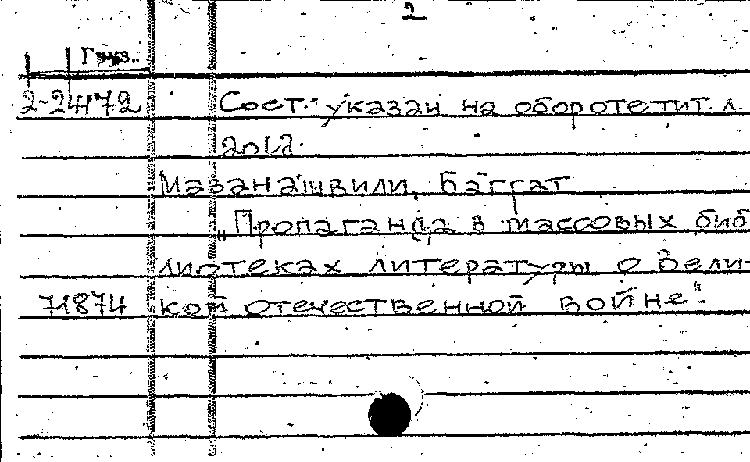 2
Груз..
2-24172 Сост. указан на обороте тит. л.
Мазанашвили, Баграт
„Пропаганда в массовых биб
лиотеках литературы о Вели-
71874 кой отечественной войне".